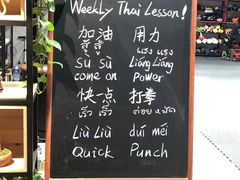 Weekly Thai Lesson!
加油 用力
สู้ สู้ แรง แรง
Sù Sù Liáng Liáng
come on Power
快一点 打拳
เร็ว เร็ว ต่อย หมัด
Liù Liù duī méi
Quick Punch